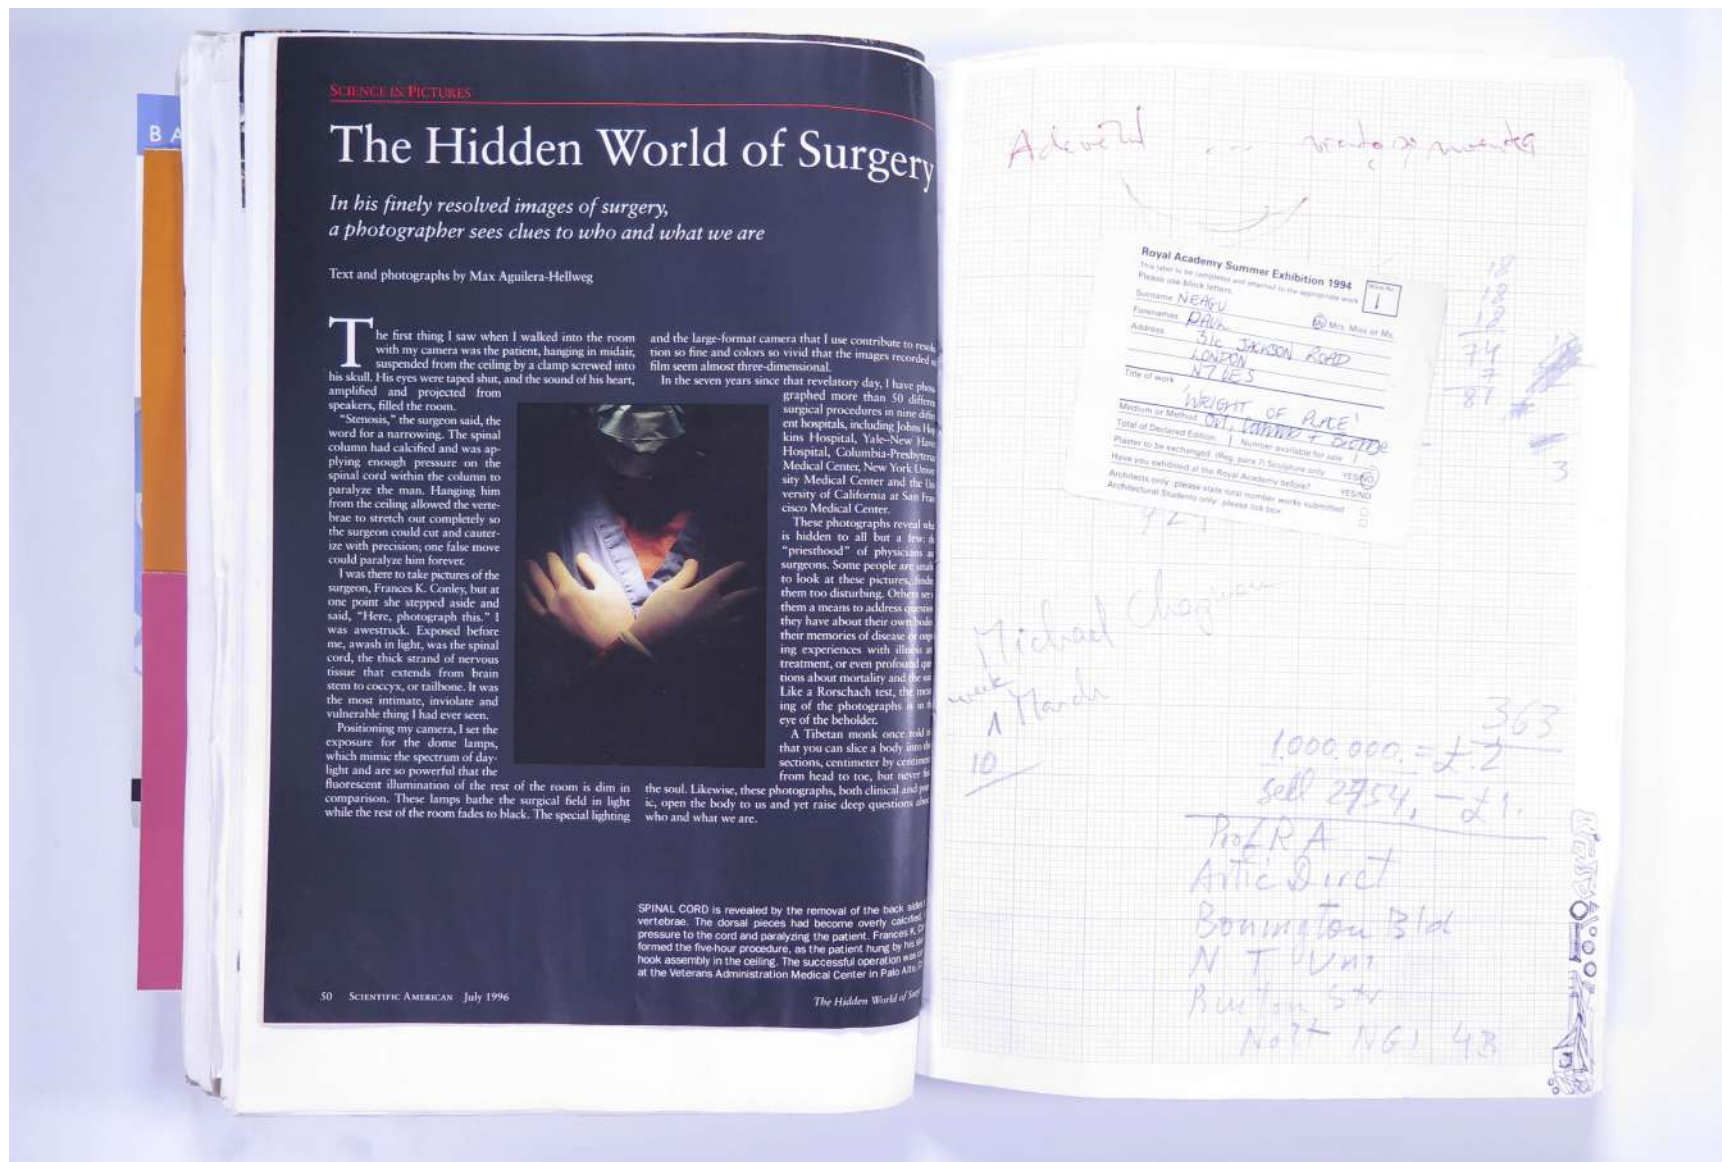 BA
SCIENCE IN PICTURES
The Hidden World of Surgery
In his finely resolved images of surgery,
a photographer sees clues to who and what we are
Text and photographs by Max Aguilera-Hellweg
The first thing I saw when I walked into the room
with my camera was the patient, hanging in midair,
suspended from the ceiling by a clamp screwed into
his skull. His eyes were taped shut, and the sound of his heart,
amplified and projected from
speakers, filled the room.
“Stenosis,” the surgeon said, the
word for a narrowing. The spinal
column had calcified and was ap-
plying enough pressure on the
spinal cord within the column to
paralyze the man. Hanging him
from the ceiling allowed the verte-
brae to stretch out completely so
the surgeon could cut and cauter-
ize with precision; one false move
could paralyze him forever.
I was there to take pictures of the
surgeon, Frances K. Conley, but at
one point she stepped aside and
said, “Here, photograph this.” I
was awestruck. Exposed before
me, awash in light, was the spinal
cord, the thick strand of nervous
tissue that extends from brain
stem to coccyx, or tailbone. It was
the most intimate, inviolate and
vulnerable thing I had ever seen.
Positioning my camera, I set the
exposure for the dome lamps,
which mimic the spectrum of day-
light and are so powerful that the
fluorescent illumination of the rest of the room is dim in
comparison. These lamps bathe the surgical field in light
while the rest of the room fades to black. The special lighting
and the large-format camera that I use contribute to
tion so fine and colors so vivid that the images recorded
film seem almost three-dimensional.
In the seven years since that revelatory day, I have
graphed more than 50
surgical procedures in nine
ent hospitals, including Johns
kins Hospital, Yale–New
Hospital, Columbia-Presbyterian
Medical Center, New York
sity Medical Center and the
versity of California at San
cisco Medical Center.
These photographs reveal
is hidden to all but a few:
“priesthood” of physicians
surgeons. Some people are
to look at these pictures,
them too disturbing. Others
them a means to address
they have about their own
their memories of disease or
ing experiences with illness
treatment, or even profound
tions about mortality and the
Like a Rorschach test, the
ing of the photographs is in
eye of the beholder.
A Tibetan monk once told
that you can slice a body into
sections, centimeter by
from head to toe, but never
the soul. Likewise, these photographs, both clinical and
ic, open the body to us and yet raise deep questions
who and what we are.
SPINAL CORD is revealed by the removal of the back
vertebrae. The dorsal pieces had become overly calcified,
pressure to the cord and paralyzing the patient. Frances K.
formed the five-hour procedure, as the patient hung by his
hook assembly in the ceiling. The successful operation was
at the Veterans Administration Medical Center in Palo Alto,
50 SCIENTIFIC AMERICAN July 1996
The Hidden World of
...
Royal Academy Summer Exhibition 1994
This label to be completed and attached to the appropriate work
Please use block letters.
1
Surname NEAGU
Forenames PAUL
Mrs. Miss or Ms.
Address 31c JACKSON ROAD
LONDON
N7 6ES
Title of work
OF PLACE'
Medium or Method
Total of Declared Edition 1 Number available for sale
Plaster to be exchanged (Reg. para 7) Sculpture only YES/NO
Have you exhibited at the Royal Academy before? YES/NO
Architects only: please state total number works submitted
Architectural Students only: please tick box
18
18
74
7
81
3
Michael
week
March
10
363
1.000.000. = £.2
sell 2954, – £1.
Prof R A
Artic Direct
Bonington Bld
N T Uni
Burton Str
Nott NG1 4B